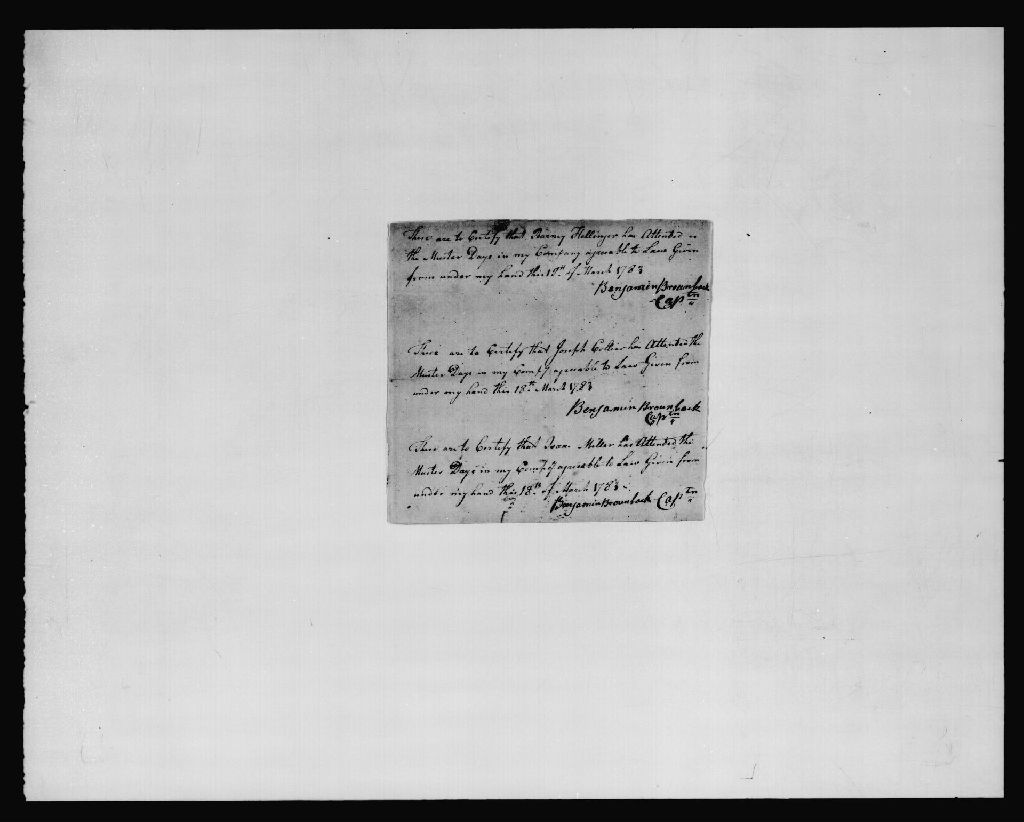 These are to Certify that Barney Hellinger has Attended
the Muster Days in my Company agreeable to Laws Given
from under my hand this 18th of March 1783
Benjamin Brownback
Captn
These are to Certify that Joseph Collier has Attended the
Muster Days in my Compy agreeable to Laws Given from
under my hand this 18th March 1783
Benjamin Brownback
Captn
These are to Certify that Isaac Miller has Attended the
Muster Days in my Compy agreeable to Laws Given from
under my hand this 18th of March 1783
Benjamin Brownback Captn